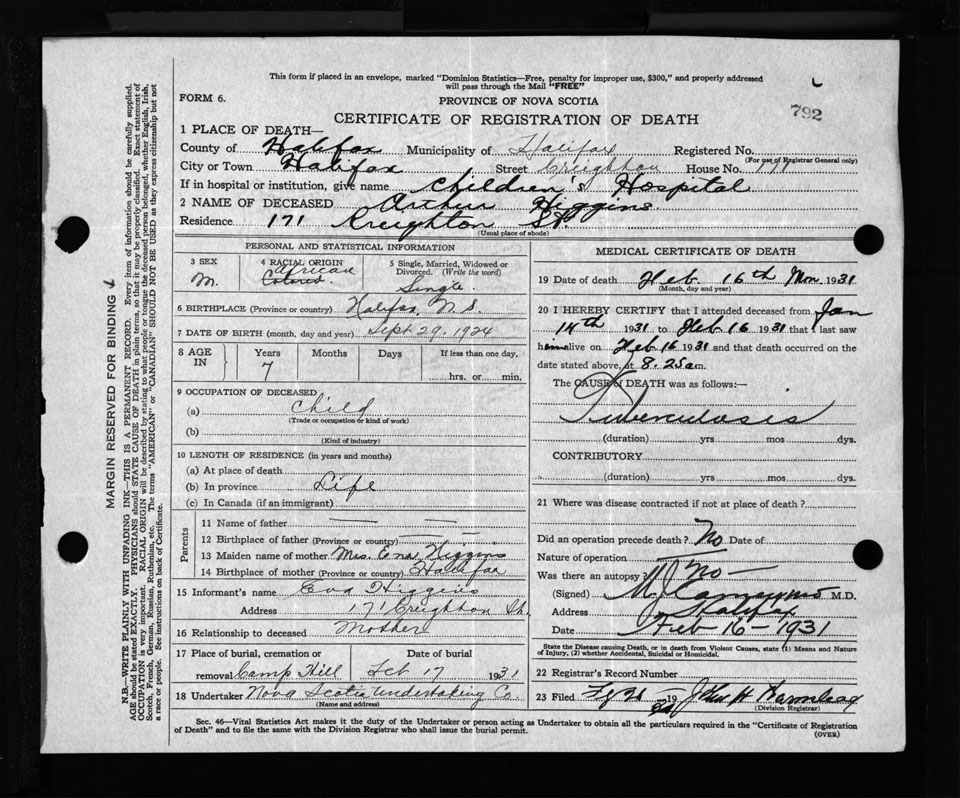 This form if placed in an envelope, marked "Dominion Statistics—Free, penalty for improper use, $300," and properly addressed
will pass through the Mail "FREE"
792
FORM 6.
PROVINCE OF NOVA SCOTIA
CERTIFICATE OF REGISTRATION OF DEATH
1 PLACE OF DEATH—
County of Halifax Municipality of Halifax Registered No.
(For use of Registrar General only)
City or Town Halifax Street Creighton House No. 171
If in hospital or institution, give name Children's Hospital
2 NAME OF DECEASED Arthur Higgins
Residence 171 Creighton St.
(Usual place of abode)
PERSONAL AND STATISTICAL INFORMATION
3 SEX
M.
4 RACIAL ORIGIN
African
Colored
5 Single, Married, Widowed or Divorced. (Write the word)
Single
6 BIRTHPLACE (Province or country) Halifax, N. S.
7 DATE OF BIRTH (month, day and year) Sept 29, 1924
8 AGE IN
Years Months Days If less than one day,
7
hrs. or min.
9 OCCUPATION OF DECEASED
(a) Child
(Trade or occupation or kind of work)
(b)
(Kind of industry)
10 LENGTH OF RESIDENCE (in years and months)
(a) At place of death
(b) In province Life
(c) In Canada (if an immigrant)
Parents
11 Name of father — —
12 Birthplace of father (Province or country) — —
13 Maiden name of mother Mrs. Eva Higgins
14 Birthplace of mother (Province or country) Halifax
15 Informant's name Eva Higgins
Address 171 Creighton St.
16 Relationship to deceased Mother
17 Place of burial, cremation or removal Camp Hill
Date of burial
Feb 17 1931
18 Undertaker Nova Scotia Undertaking Co.
(Name and address)
MEDICAL CERTIFICATE OF DEATH
19 Date of death Feb. 16th Mon. 1931
(Month, day and year)
20 I HEREBY CERTIFY that I attended deceased from Jan
14th 1931 to Feb 16 1931 that I last saw
him alive on Feb 16 1931 and that death occurred on the
date stated above, at 8.25 a m.
The CAUSE of DEATH was as follows:—
Tuberculosis
(duration) yrs mos dys.
CONTRIBUTORY
(duration) yrs mos dys.
21 Where was disease contracted if not at place of death?
Did an operation precede death? No Date of
Nature of operation
Was there an autopsy? No —
(Signed) M.D.
Address Halifax
Date Feb 16 – 1931
State the Disease causing Death, or in death from Violent Causes, state (1) Means and Nature
of Injury, (2) whether Accidental, Suicidal or Homicidal.
22 Registrar's Record Number
23 Filed 19
(Division Registrar)
Sec. 46—Vital Statistics Act makes it the duty of the Undertaker or person acting as Undertaker to obtain all the particulars required in the "Certificate of Registration
of Death" and to file the same with the Division Registrar who shall issue the burial permit.
(OVER)
MARGIN RESERVED FOR BINDING
N.B.—WRITE PLAINLY WITH UNFADING INK—THIS IS A PERMANENT RECORD. Every item of information should be carefully supplied.
AGE should be stated EXACTLY. PHYSICIANS should STATE CAUSE OF DEATH in plain terms, so that it may be properly classified. Exact statement of
OCCUPATION is very important. RACIAL ORIGIN will be described by stating to what people or tongue the deceased person belonged, whether English, Irish,
Scotch, French, German, Russian, Ruthenian, etc. The terms "AMERICAN" or "CANADIAN" SHOULD NOT BE USED as they express citizenship but not
a race or people. See instructions on back of Certificate.